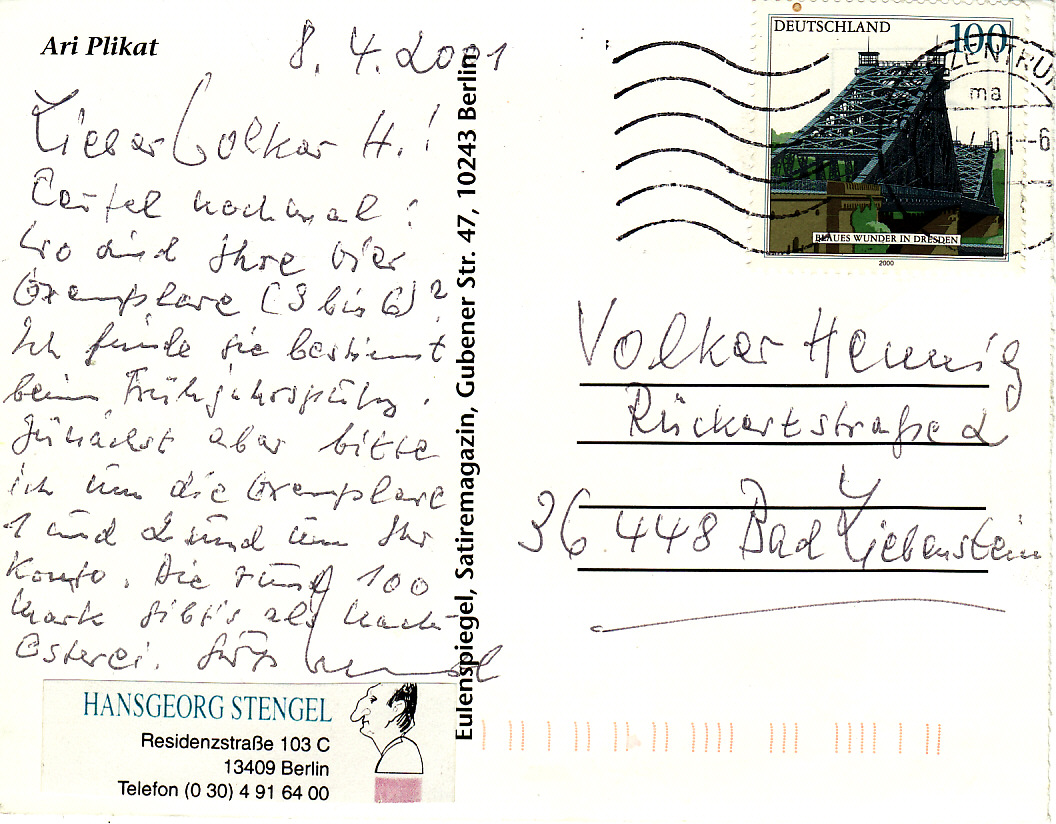 Ari Plikat
8. 4. 2001
Lieber Volker H.!
noch mal:
Wo sind Ihre vier
Exemplare (3 bis 6)?
Ich finde sie bestimmt
beim Frühjahrsputz.
Zunächst aber bitte
ich um die Exemplare
1 und 2 und um Ihr
Konto. Die rund 100
Mark gibt's als Nach-
Osterei. Gruß
HANSGEORG STENGEL
Residenzstraße 103 C
13409 Berlin
Telefon (0 30) 4 91 64 00
Eulenspiegel, Satiremagazin, Gubener Str. 47, 10243 Berlin
DEUTSCHLAND 100
BLAUES WUNDER IN DRESDEN
2000
ZENTRUM
ma
01--6
Volker Hennig
Rückertstraße 2
36 448 Bad Liebenstein